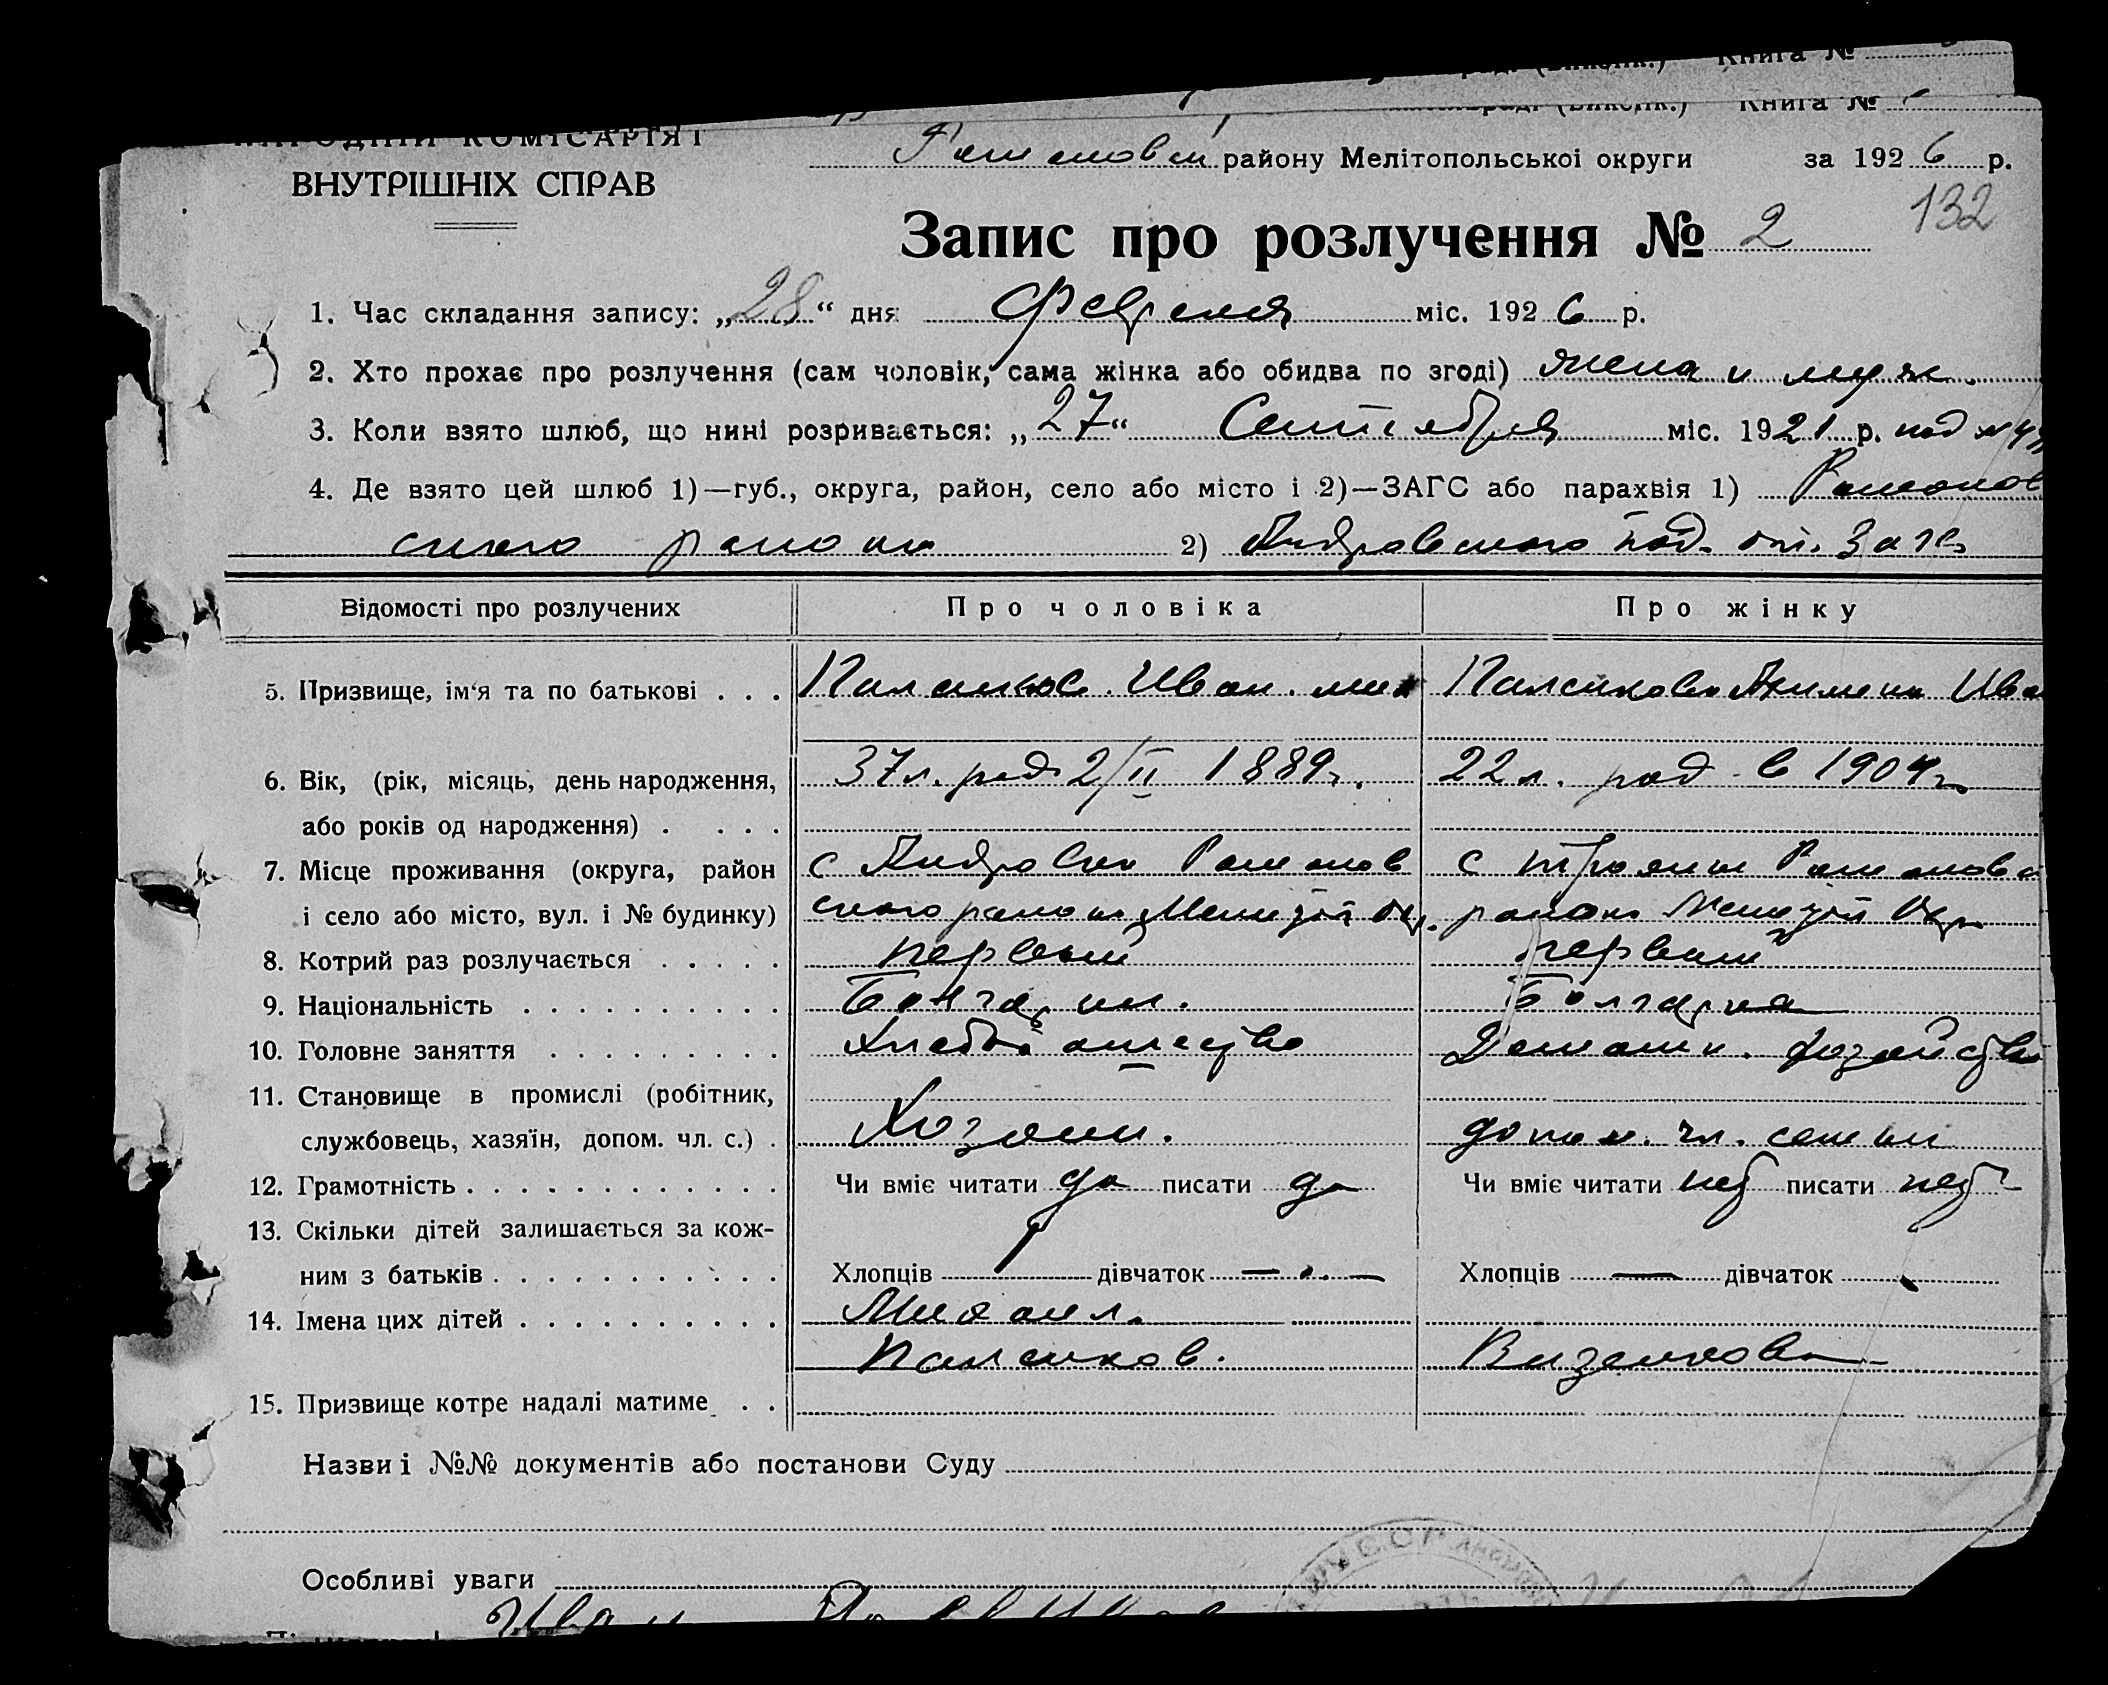 Книга №
Книга №
НАРОДНІЙ КОМІСАРІЯТ
ВНУТРІШНІХ СПРАВ
району Мелітопольської округи за 1926 р.
132
Запис про розлучення № 2
1. Час складання запису: „28“ дня Февраля міс. 1926 р.
2. Хто прохає про розлучення (сам чоловік, сама жінка або обидва по згоді) жена и муж.
3. Коли взято шлюб, що нині розривається: „27“ Сентября міс. 1921 р. под №
4. Де взято цей шлюб 1)—губ., округа, район, село або місто і 2)—ЗАГС або парахвія 1) Романов
ского района 2) Андровского под. от. Загс
Відомості про розлучених Про чоловіка Про жінку
5. Призвище, ім‘я та по батькові . . . Палсиков Иван. мих Палсикова Ива
6. Вік, (рік, місяць, день народження, 37 л. род 2/II 1889 г. 22 л. род в 1904 г
або років од народження) . . . .
7. Місце проживання (округа, район с Андровка Романов с Трояны Романовс
і село або місто, вул. і № будинку) ского района Мелитоп Окр. района Мелитоп Окр
8. Котрий раз розлучається . . . . . первый первый
9. Національність . . . . . . . . . . Болгарин. Болгарка
10. Головне заняття . . . . . . . . . Хлебопашество Домашн. хозяйство
11. Становище в промислі (робітник,
службовець, хазяїн, допом. чл. с.) . Хозяин. допом. чл. семьи
12. Грамотність . . . . . . . . . . . . Чи вміє читати да писати да Чи вміє читати нет писати нет
13. Скільки дітей залишається за кож-
ним з батьків . . . . . . . . . . . Хлопців 1 дівчаток — Хлопців — дівчаток
14. Імена цих дітей . . . . . . . . . . Михаил.
Палсиков. Визенкова
15. Призвище котре надалі матиме . .
Назви і №№ документів або постанови Суду
Особливі уваги
Иван